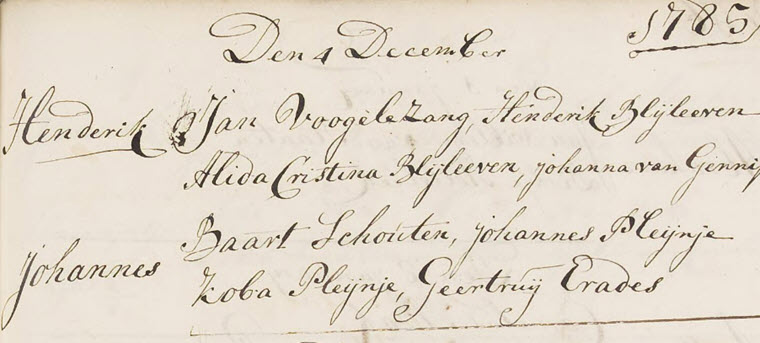 1785
Den 4 December
Henderik Jan Voogelezang, Henderik Blijleeven
Alida Cristina Blijleeven, Johanna van Gennip
Baart Schouten, Johannes Pleijnje
Johannes
Koba Pleijnje, Geertruij Erades